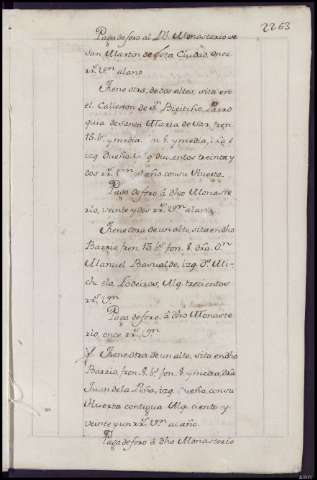 2263
Paga de foro al Rl. Monasterio de
San Martin de esta Ciudad, once
rrs. Vn. al año
Tiene otra, de dos altos, sita en
el Callejon de Sn. Parro
quia de Santa Maria de Sar, fren.
15. bs. y media fon. 8. y media, dra. è
izq. Dueño, Alq. ducientos treinta y
dos rrs. Vn. al año con su Huerta.
Paga de foro à dho Monaste
rio, veinte y dos rrs. Vn. al año.
Tiene otra de un alto, sita en dho
Barrio, fren. 15. bs. fon. 8. dra. Dn.
Manuel Basualdo, izq. Da. Mi-
chàela Lodeiros, Alq. trecientos
rrs. Vn.
Paga de foro, à dho Monaste
rio, once rrs. Vn.
Tiene otra de un alto, sita en dho
Barrio, fren. 8. bs. fon. 8. y media, dra.
Juan de la Peña, izq. Dueño, con su
Huerta contigua Alq. ciento y
veinte y un rrs. Vn. al año.
Paga de foro à dho Monasterio